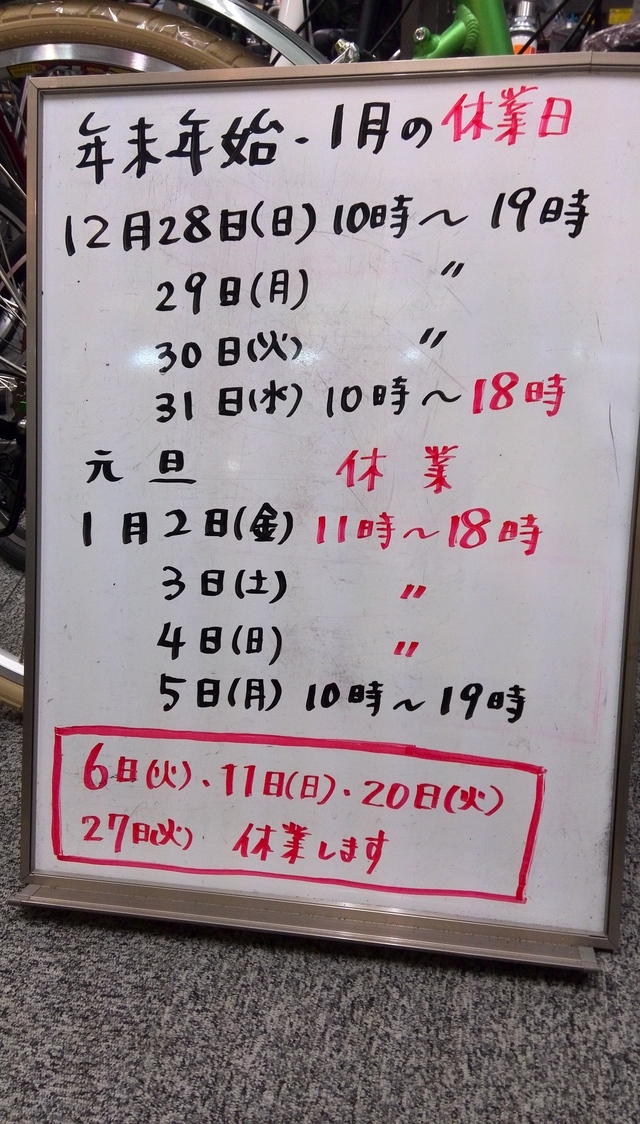 年末年始・1月の休業日
12月28日(日) 10時～19時
29日(月) 〃
30日(火) 〃
31日(水) 10時～18時
元旦 休業
1月2日(金) 11時～18時
3日(土) 〃
4日(日) 〃
5日(月) 10時～19時
6日(火)・11日(日)・20日(火)
27日(火) 休業します